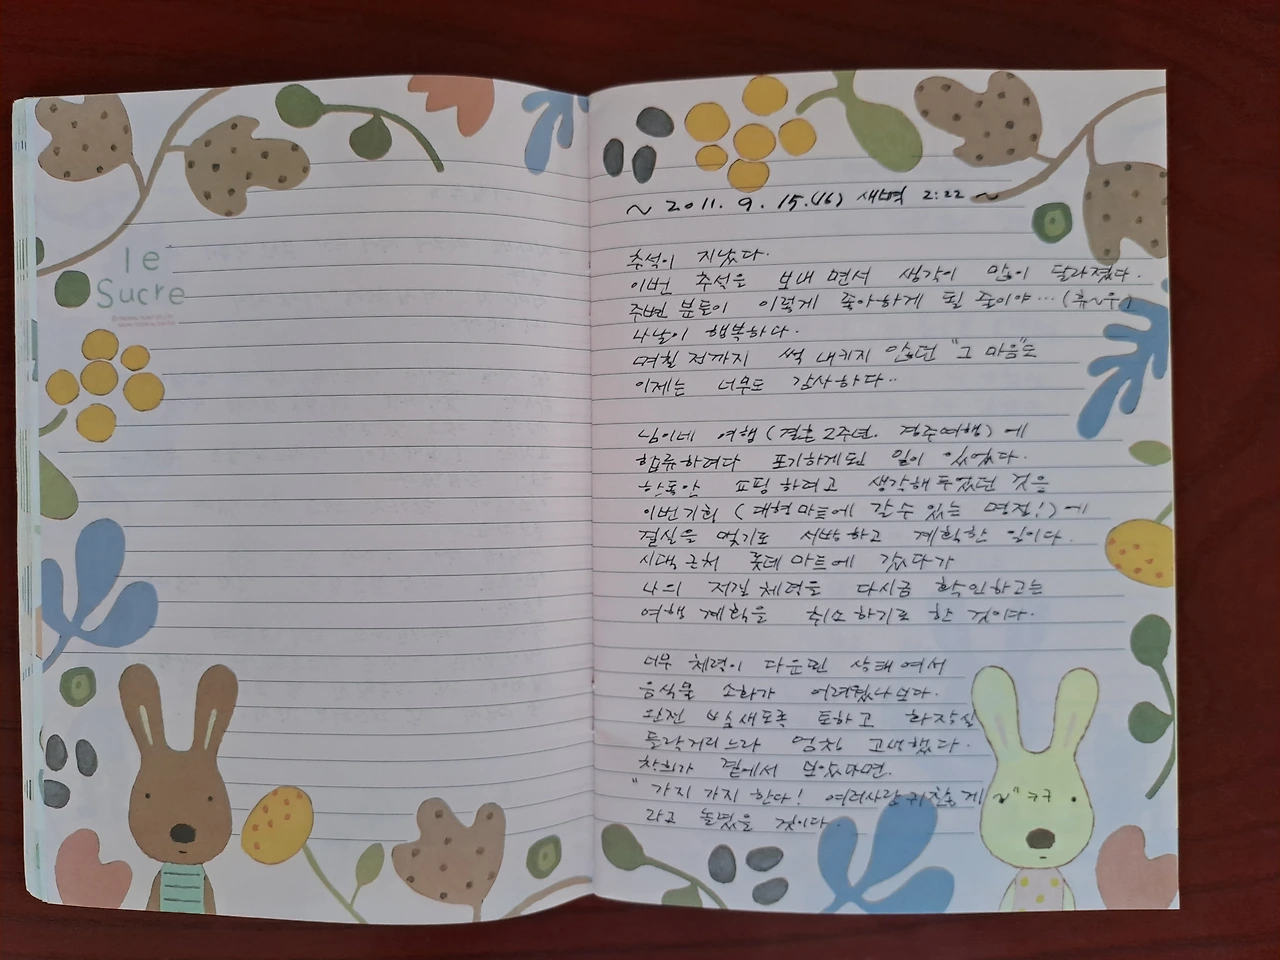 le
Sucre
~ 2011. 9. 15.(16) 새벽 2:22 ~
추석이 지났다.
이번 추석은 보내면서 생각이 많이 달라졌다.
주변 분들이 이렇게 좋아하게 될 줄이야… (휴~우)
나날이 행복하다.
며칠 전까지 썩 내키지 않던 "그 마음"도
이제는 너무도 감사하다..
남이네 여행 (결혼 2주년. 경주여행) 에
합류하려다 포기하게된 일이 있었다.
한동안 쇼핑하려고 생각해 두었던 것을
이번 기회 (대형마트에 갈 수 있는 명절!) 에
결심을 맺기로 서방하고 계획한 일이다.
시댁 근처 롯데마트에 갔다가
나의 저질 체력을 다시금 확인하고는
여행 계획을 취소하기로 한 것이다.
너무 체력이 다운된 상태여서
음식물 소화가 어려웠나보다.
완전 밤새도록 토하고 화장실
들락거리느라 엄청 고생했다.
찬희가 곁에서 보았다면.
"가지 가지 한다! 여러사람 귀찮게 ~" ㅋㅋ
라고 놀렸을 것이다.